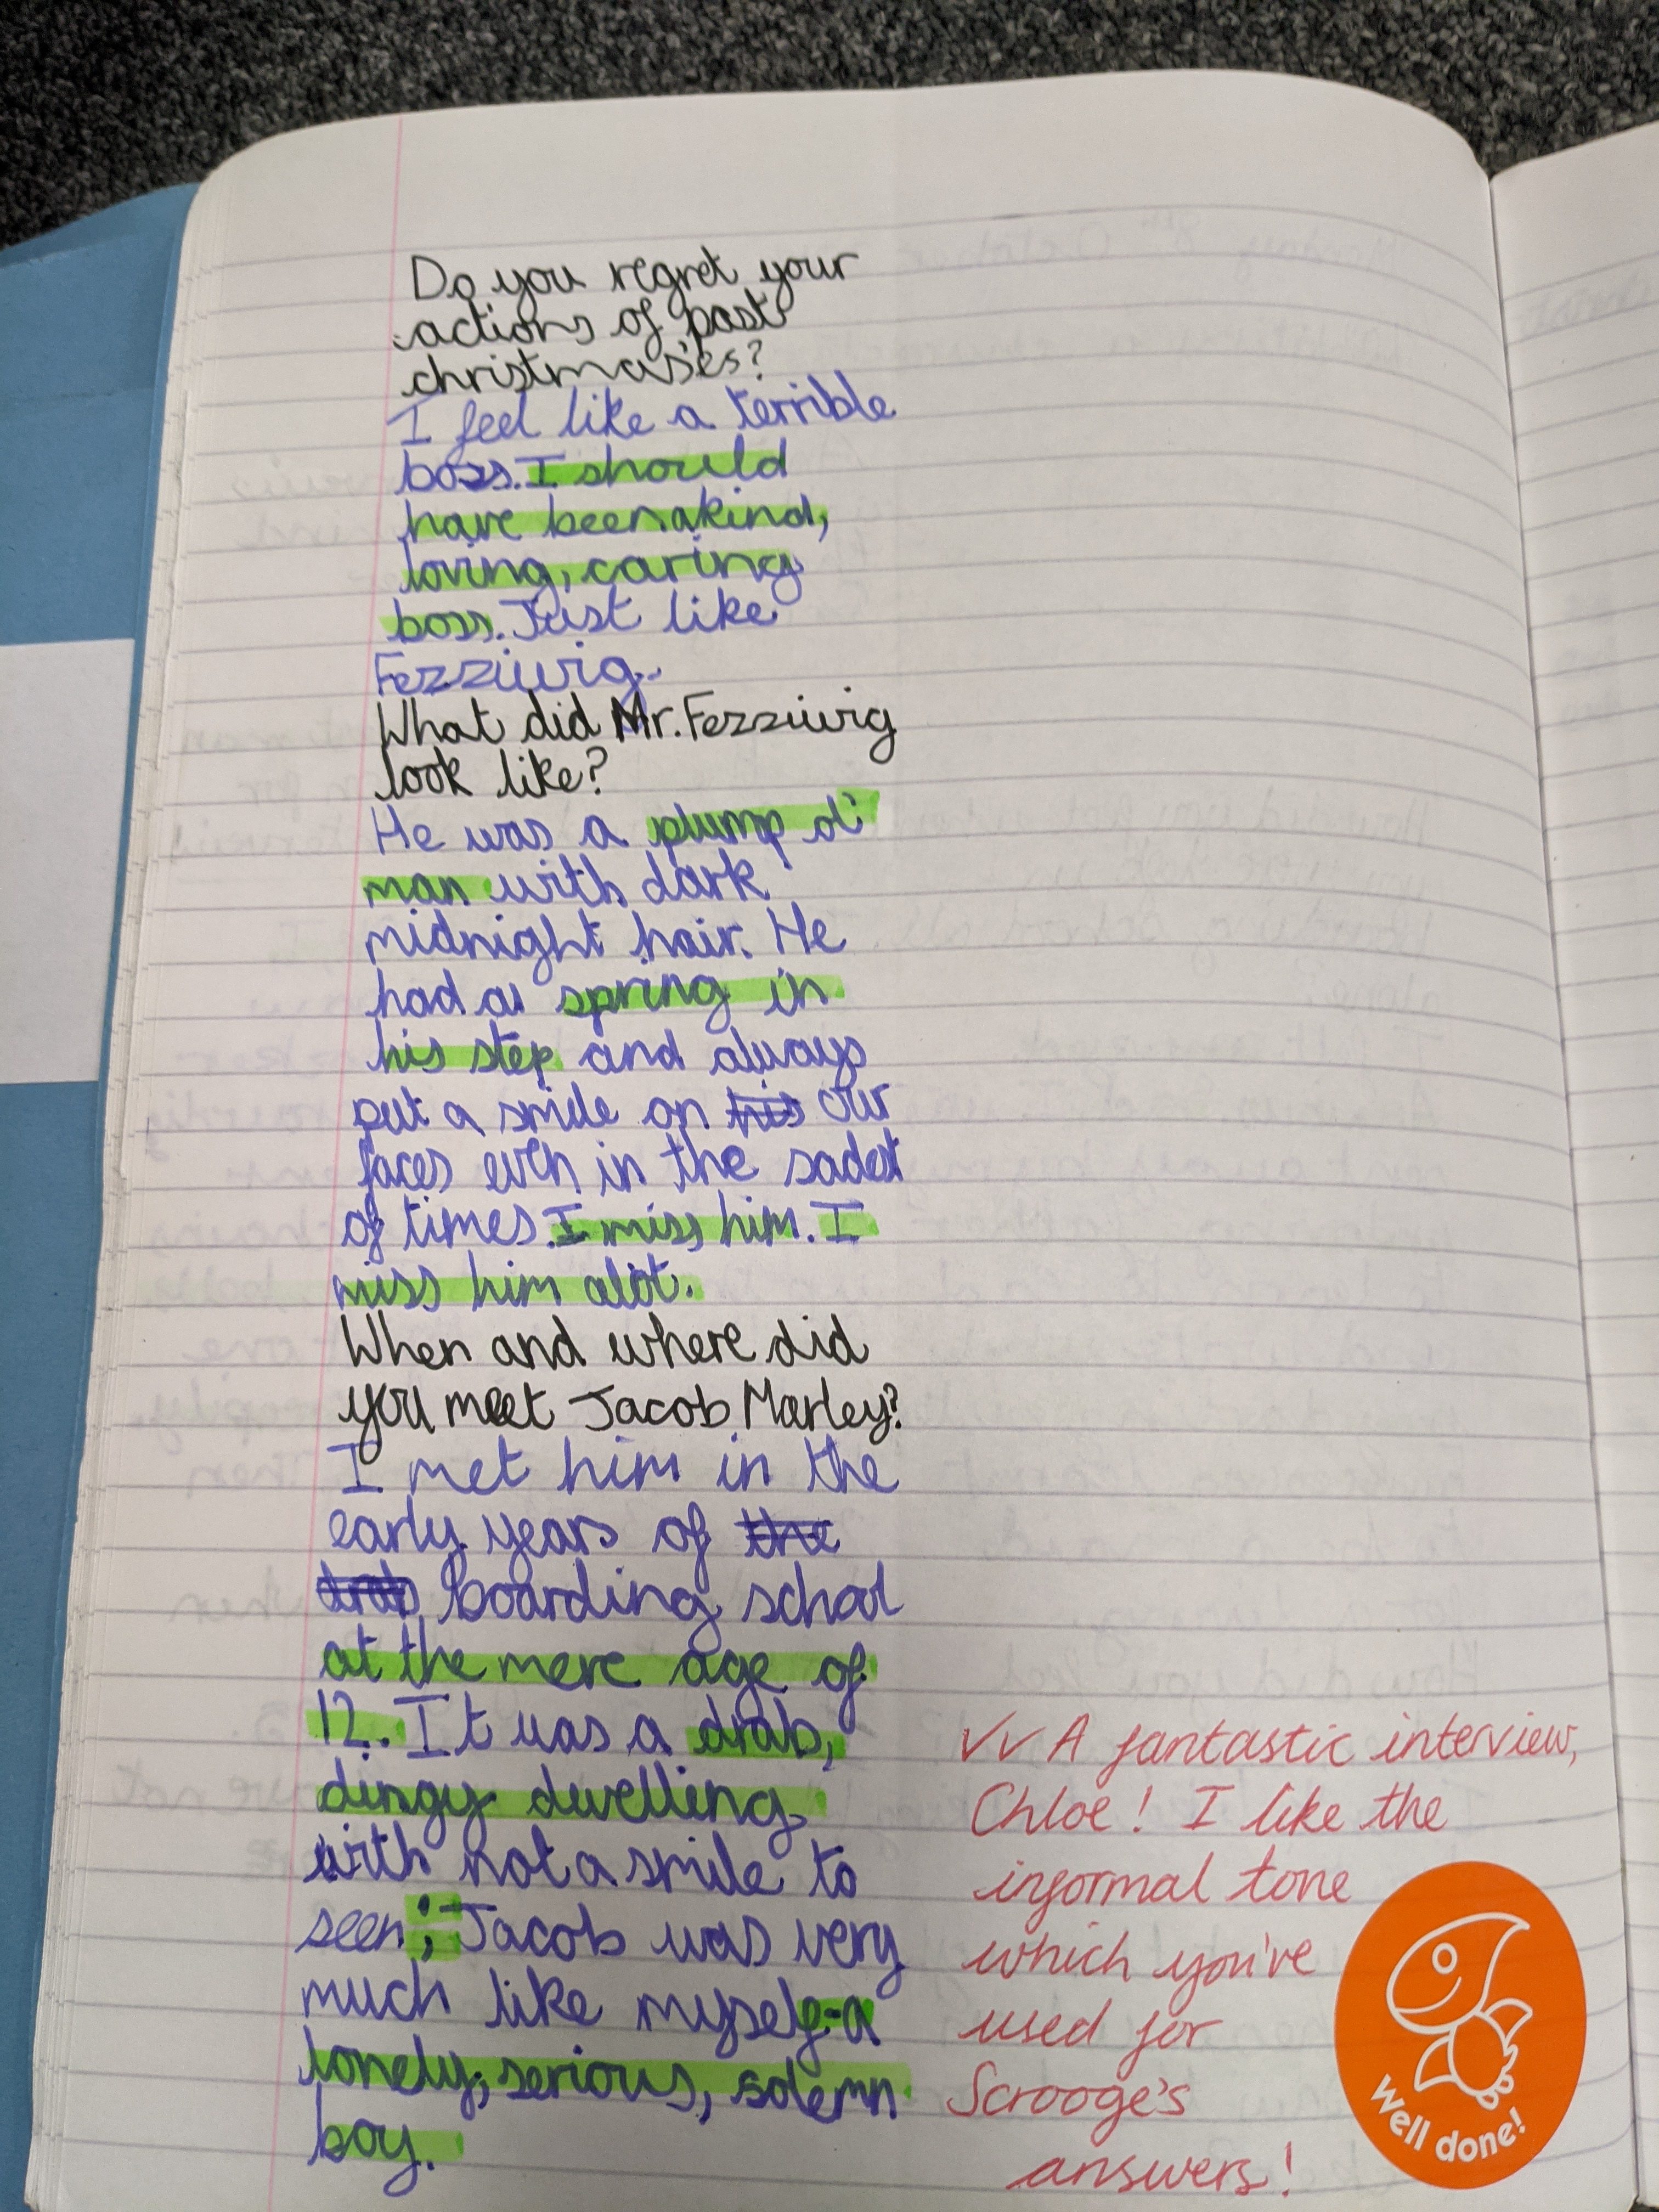 Do you regret your
actions of past
christmases?
I feel like a terrible
boss. I should
have been a kind,
loving, caring
boss. Just like
Fezziwig.
What did Mr. Fezziwig
look like?
He was a plump ol'
man with dark
midnight hair. He
had a spring in
his step and always
put a smile on his our
faces even in the sadest
of times. I miss him. I
miss him alot.
When and where did
you meet Jacob Marley?
I met him in the
early years of the
drab boarding school
at the mere age of
12. It was a drab,
dingy dwelling
with not a smile to
seen; Jacob was very
much like myself-a
lonely, serious, solemn
boy.
✓✓ A fantastic interview,
Chloe! I like the
informal tone
which you've
used for
Scrooge's
answers!
Well done!